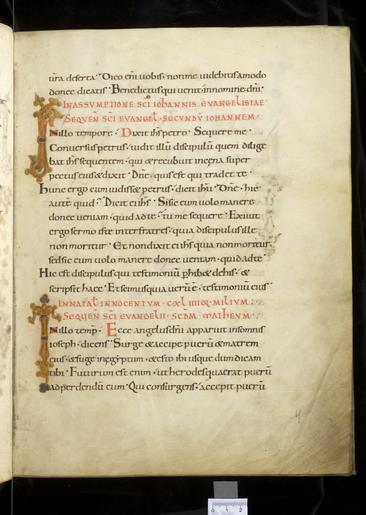 ur̄a deserta. Dico enī uobis. non me uidebitis amodo
donec dicatis. Benedictus qui uenit in nomine dn̄i.
IN ASSUMPTIONE SC̄I IOHANNIS EVANGELISTAE
SEQUEN̄ SC̄I EVANGEL. SECVNDV̄ IOHANNEM.
IN illo tempore. Dixit ih̄s petro. Sequere me.
Conuersus petrus. uidit illū discipulū quem dilige
bat ih̄s sequentem. qui & recubuit in cęna super
pectus eius & dixit. Dn̄e. quis est qui tradet te.
Hunc ergo cum uidisset petrus. dicit ih̄u. Dn̄e. hic
autē quid. Dicit ei ih̄s. Sic eum uolo manere
donec ueniam. quid ad te. tu me sequere. Exiuit
ergo sermo iste inter fratres. quia discipulus ille
non moritur. Et non dixit ei ih̄s quia non moritur.
sed sic eum uolo manere donec ueniam. quid ad te.
Hic est discipulus qui testimoniū phib& de his. &
scripsit haec. Et scimus quia uerū ē. testimoniū eius.
IN NAT̄ INNOCENTVM. CXLIIII MILIVM.
SEQUEN̄ SC̄I EVANGELII. SCDM̄ MATHEVM.
IN illo temp̄. Ecce angelus dn̄i apparuit in somnis
ioseph. dicens. Surge & accipe puerū & matrem
eius. & fuge in egyptum. & esto ibi usque dum dicam
tibi. Futurum est enim. ut herodes quaerat puerū
ad perdendū eum. Qui consurgens. accepit puerū
4